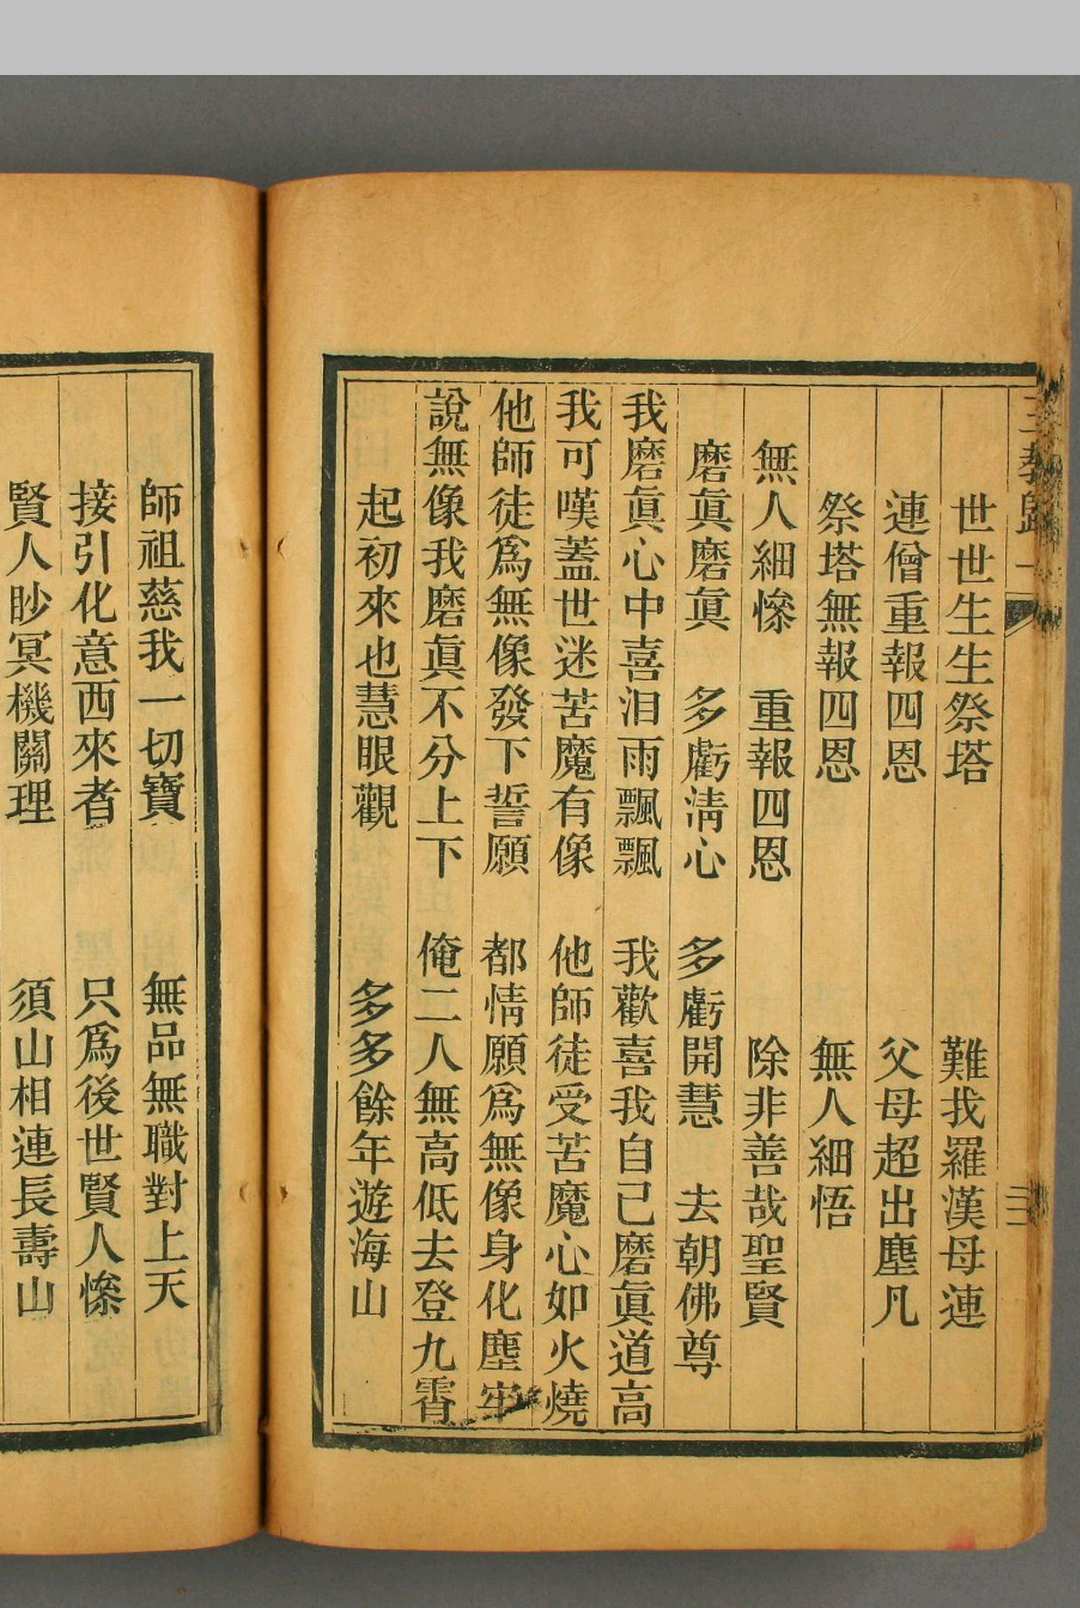 三教歸一
三
世世生生祭塔　難我羅漢母連
連僧重報四恩　父母超出塵凡
祭塔無報四恩　無人細悟
無人細慘　重報四恩　除非善哉聖賢
磨眞磨眞　多虧淸心　多虧開慧　去朝佛尊
我磨眞心中喜泪雨飄飄　我歡喜我自己磨眞道高
我可嘆蓋世迷苦魔有像　他師徒受苦魔心如火燒
他師徒爲無像發下誓願　都情願爲無像身化塵牢
說無像我磨眞不分上下　俺二人無高低去登九霄
起初來也慧眼觀　多多餘年遊海山
師祖慈我一切寶　無品無職對上天
接引化意西來者　只爲後世賢人慘
賢人眇冥機關理　須山相連長壽山